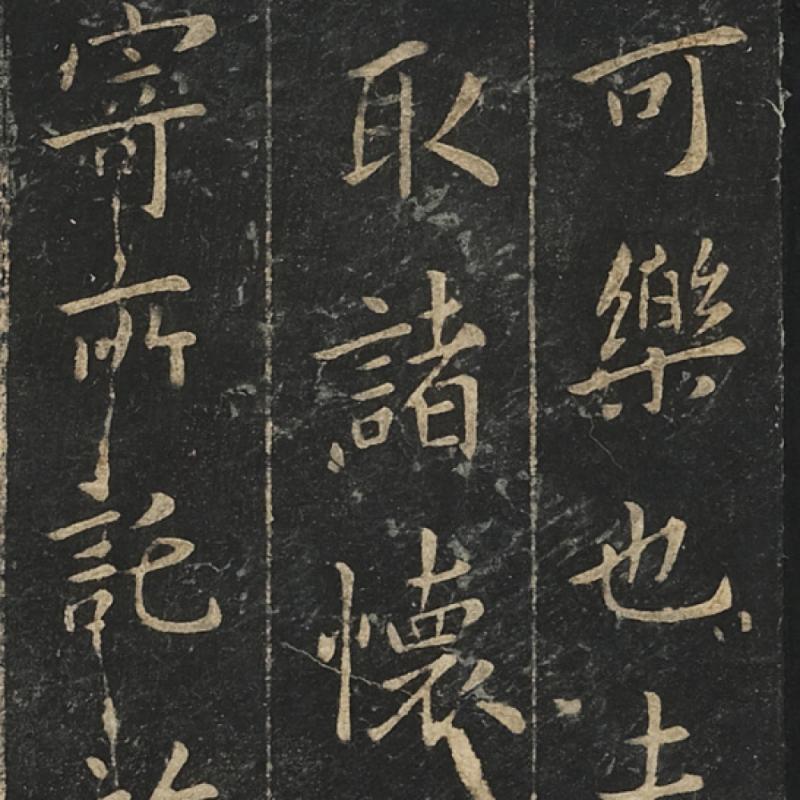 可樂也
取諸懷
寄所託